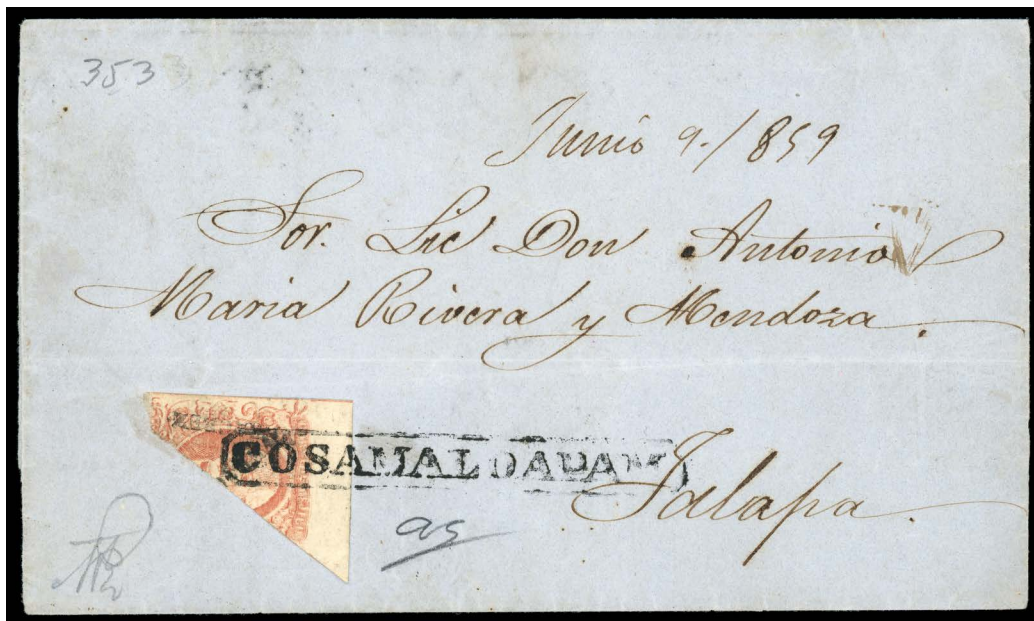 353
Junio 9./859
Sor. Lic Don Antonio
Maria Rivera y Mendoza.
COSAMALOAPAM
Jalapa.